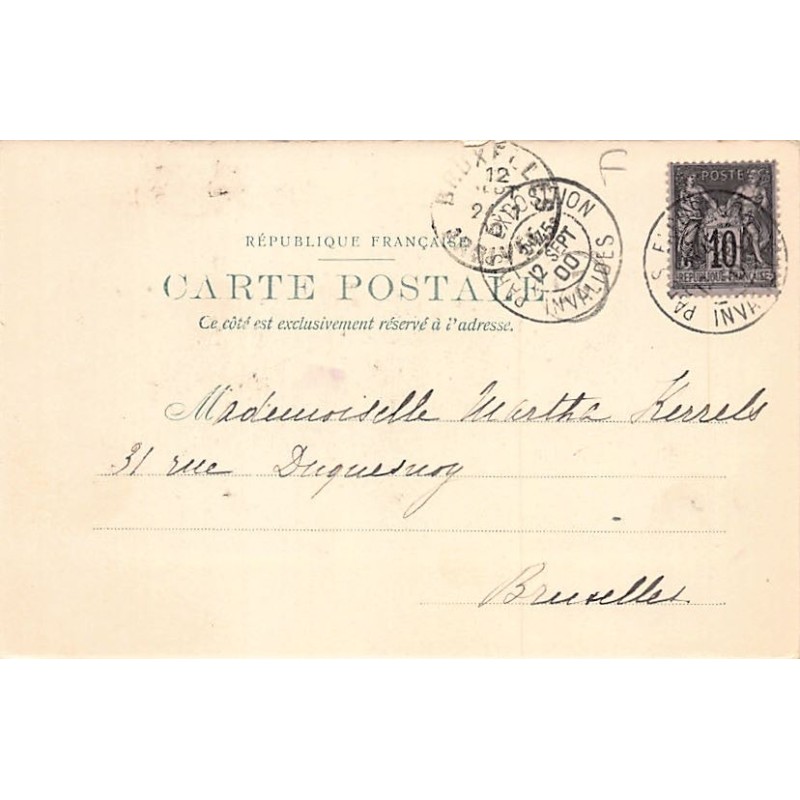 BRUXELL
12
EXPOSITION
12
SEPT
00
INVALIDES
POSTES
10
RÉPUBLIQUE FRANÇAISE
INVA
RÉPUBLIQUE FRANÇAISE
CARTE POSTALE
Ce côté est exclusivement réservé à l'adresse.
Mademoiselle Martha Kerrels
31 rue Duquesnoy
Bruxelles